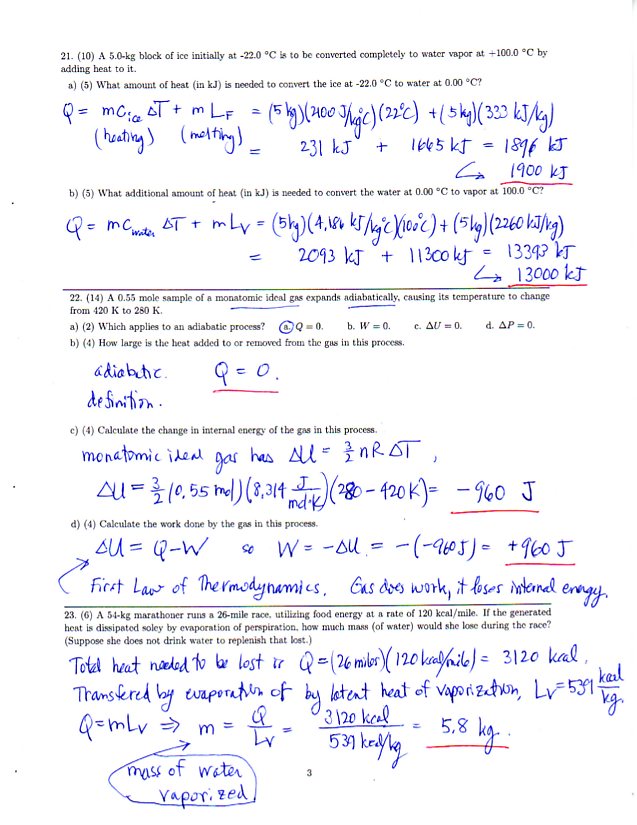 21. (10) A 5.0-kg block of ice initially at -22.0 °C is to be converted completely to water vapor at +100.0 °C by
adding heat to it.
a) (5) What amount of heat (in kJ) is needed to convert the ice at -22.0 °C to water at 0.00 °C?
Q = mCice ΔT + m LF = (5 kg)(2100 J/kg°C)(22°C) + (5 kg)(333 kJ/kg)
(heating) (melting) = 231 kJ + 1665 kJ = 1896 kJ
↳ 1900 kJ
b) (5) What additional amount of heat (in kJ) is needed to convert the water at 0.00 °C to vapor at 100.0 °C?
Q = mCwater ΔT + mLV = (5kg)(4.186 kJ/kg°C)(100°C) + (5kg)(2260 kJ/kg)
= 2093 kJ + 11300 kJ = 13393 kJ
↳ 13000 kJ
22. (14) A 0.55 mole sample of a monatomic ideal gas expands adiabatically, causing its temperature to change
from 420 K to 280 K.
a) (2) Which applies to an adiabatic process? a. Q = 0. b. W = 0. c. ΔU = 0. d. ΔP = 0.
b) (4) How large is the heat added to or removed from the gas in this process.
adiabatic Q = 0.
definition.
c) (4) Calculate the change in internal energy of the gas in this process.
monatomic ideal gas has ΔU = 3/2 nR ΔT,
ΔU = 3/2 (0.55 mol)(8.314 J/mol·K)(280 - 420K) = -960 J
d) (4) Calculate the work done by the gas in this process.
ΔU = Q-W so W = -ΔU = -(-960J) = +960 J
First Law of Thermodynamics. Gas does work, it loses internal energy.
23. (6) A 54-kg marathoner runs a 26-mile race, utilizing food energy at a rate of 120 kcal/mile. If the generated
heat is dissipated soley by evaporation of perspiration, how much mass (of water) would she lose during the race?
(Suppose she does not drink water to replenish that lost.)
Total heat needed to be lost is Q = (26 miles)(120 kcal/mile) = 3120 kcal.
Transfered by evaporation of by latent heat of vaporization, LV = 539 kcal/kg.
Q = mLV ⇒ m = Q/LV = 3120 kcal/539 kcal/kg = 5.8 kg.
mass of water
vaporized
3